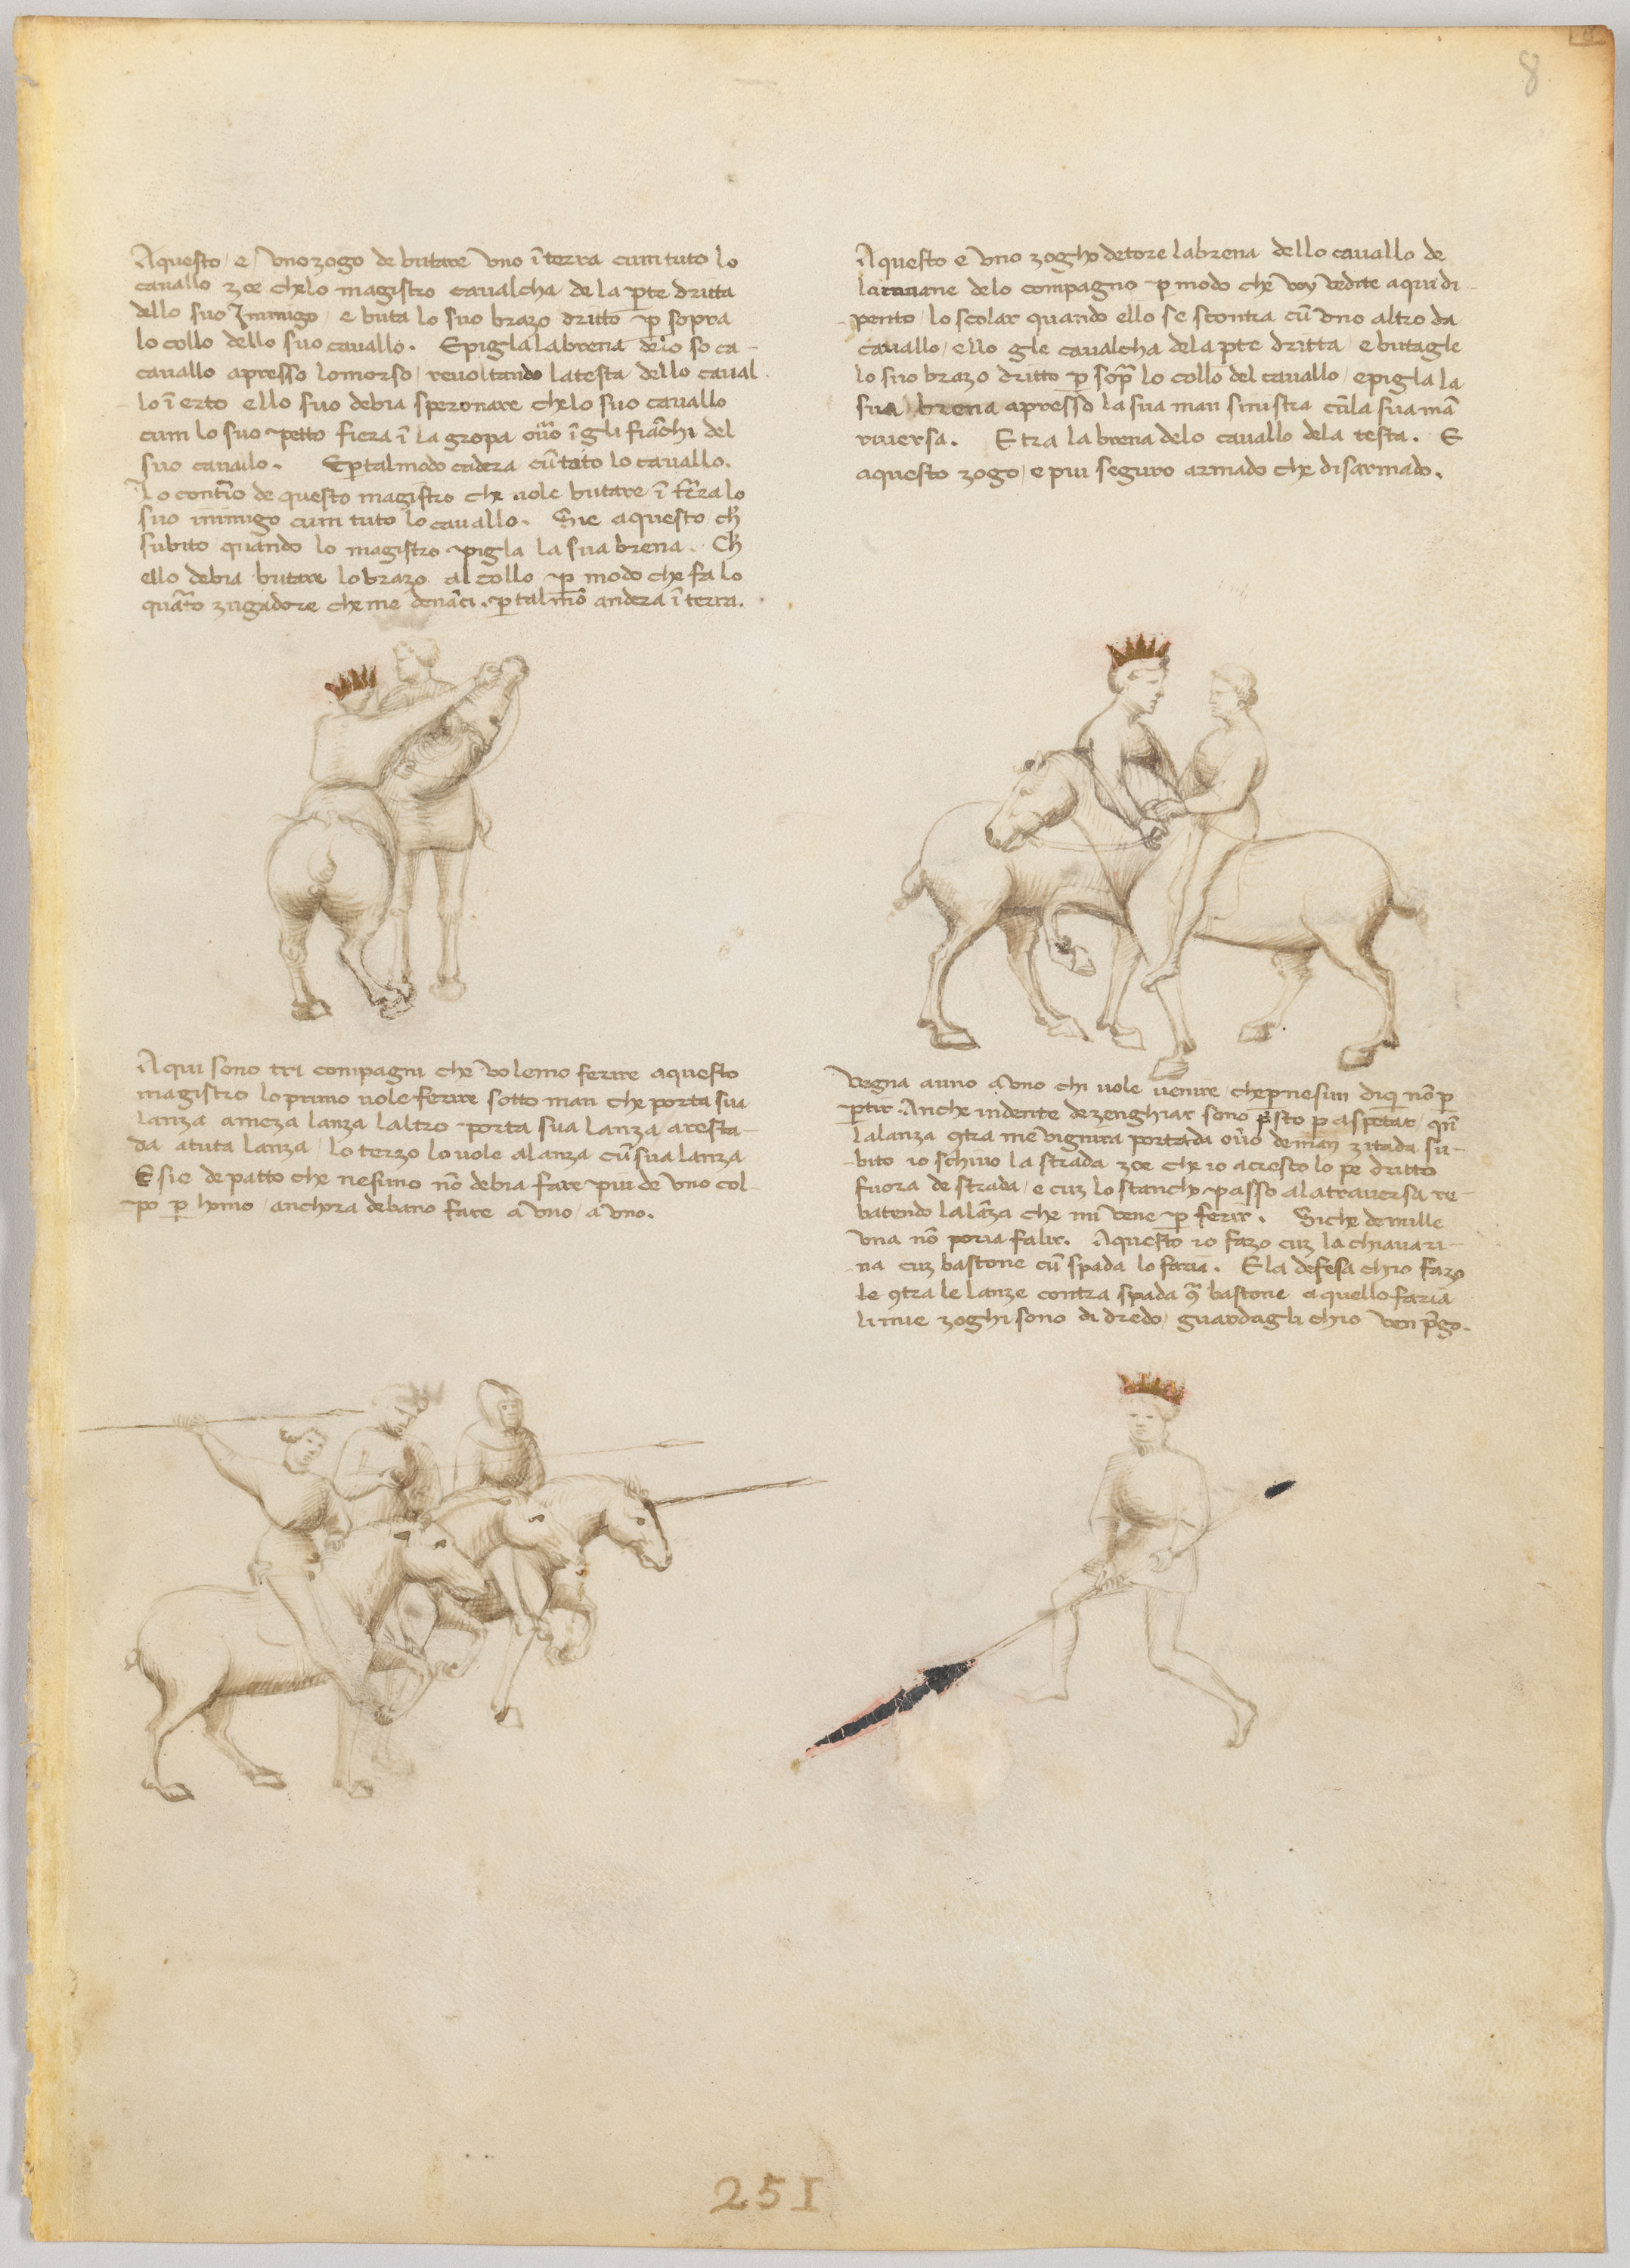 8
Aquesto / e / Uno zogo de butare Uno ī terra cum tuto lo
cauallo zoe chelo magistro caualcha de la ꝑte dritta
dello suo Inimigo / e buta lo suo brazo dritto ꝑ sopra
lo collo dello suo cauallo. E pigla la brena delo so ca-
cauallo apresso lo morso / reuoltando la testa dello caual
lo ī erto ello suo debia speronare chelo suo cauallo
cum lo suo petto fiera ī la gropa oūo ī gli fiāchi del
suo cauallo. E ꝑ tal modo cadera cū toto lo cauallo.
Lo contrīo de questo magistro che uole butare ī tr̄ra lo
suo inimigo cum tuto lo cauallo. Sie aquesto ch̄
subito quando lo magistro pigla la sua brena. Ch̄
ello debia butare lo brazo al collo ꝑ modo che fa lo
quarto zugadore che me denāci. ꝑ tal mō andera ī terra.
Aquesto e uno zogho de tore la brena dello cauallo de
la mane delo compagno ꝑ modo che voy vedite aqui di-
pento / lo scolar quando ello se scontra cū uno altro da
cauallo / ello gle caualcha dela ꝑte dritta / e butagle
lo suo brazo dritto ꝑ sopra lo collo del cauallo / e pigla la
sua brena apresso la sua man sinistra cū la sua mā
riuersa. E tra la brena delo cauallo dela testa. E
aquesto zogo / e piu seguro armado che disarmado.
Aqui sono tri compagni che volemo ferire aquesto
magistro lo primo uole ferire sotto man che porta sua
lanza a meza lanza laltro porta sua lanza aresta-
da a tuta lanza / lo terzo lo uole alanza cū sua lanza
E sie de patto che nesuno nō debia fare piu de vno col-
po ꝑ homo / anchora debano fare a vno / a vno.
Vegna auno a vno chi uole uenire / che ꝑ nesun di qi nō ꝑ
ꝑtir. Anche in dente de zenghiar sono p̄sto ꝑ aspetar / qn̄
la lanza 9tra me vignira portada oūo de man zitada su-
bito io schiuo la strada zoe che io acresco lo pe dritto
fuora de strada / e cuz lo stancho passo ala trauersa re-
batendo la lāza che mi vene ꝑ ferir. Siche de mille
vna nō poria falir. Aquesto io fazo cuz la chiauari-
na cuz bastone cū spada lo faria. E la defesa chio fazo
le 9tra le lanze contra spada 9tra bastone aquello faria
li mie zoghi sono di dredo / guardagli chio ven p̄go.
251